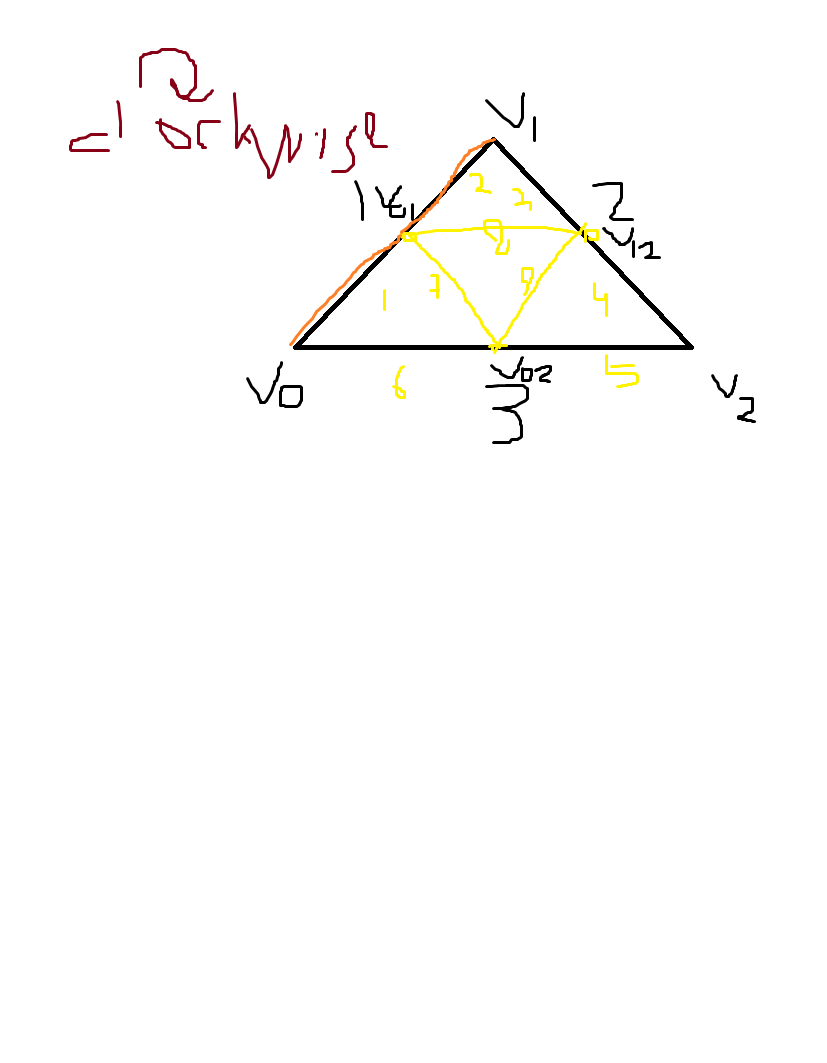 clockwise
V1
1 V01
2
V12
2 2
8
1 7 9 4
V0
6
V02
3
5
V2